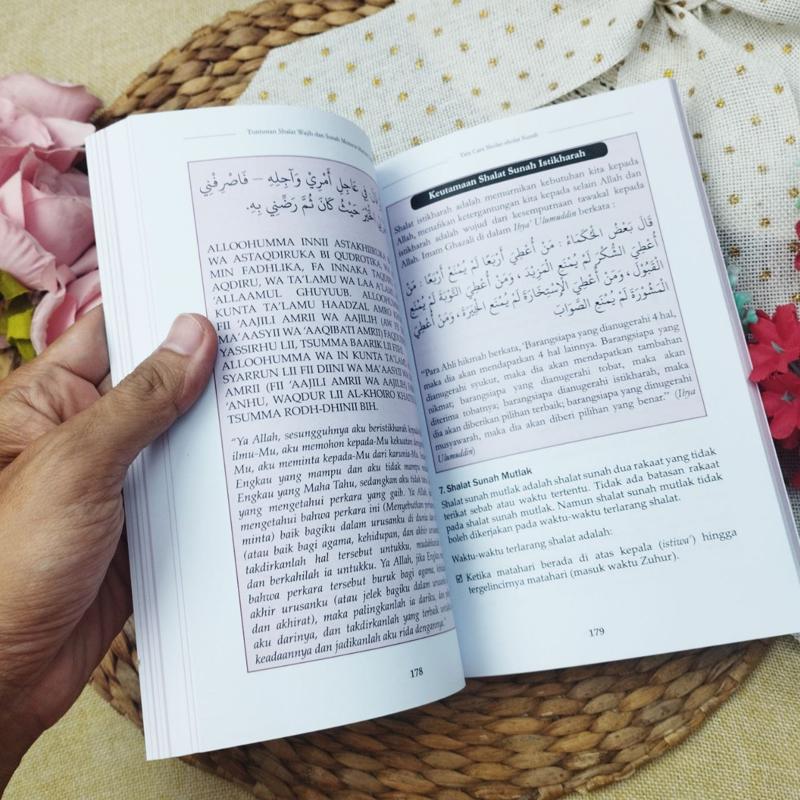 Tuntunan Shalat Wajib dan Sunah
فِي عَاجِلِ أَمْرِيْ وَآجِلِهِ – فَاصْرِفْنِي
الْخَيْرَ حَيْثُ كَانَ ثُمَّ رَضِّنِي بِهِ.
ALLOOHUMMA INNII ASTAKHIIRUKA
WA ASTAQDIRUKA BI QUDROTIKA, WA
MIN FADHLIKA, FA INNAKA TAQDIRU
AQDIRU, WA TA'LAMU WA LAA A'LAMU
'ALLAAMUL GHUYUUB. ALLOOHUMMA
KUNTA TA'LAMU HAADZAL AMRO
FII 'AAJILI AMRII WA AAJILIH (AW FII
MA'AASYII WA 'AAQIBATI AMRII) FAQDURHU
YASSIRHU LII, TSUMMA BAARIK LII FIIHI
ALLOOHUMMA WA IN KUNTA TA'LAMU
SYARRUN LII FII DIINI WA MA'AASYII
AMRII (FII 'AAJILI AMRII WA AAJILIH)
'ANHU, WAQDUR LII AL-KHOIRO
TSUMMA RODH-DHINII BIH.
"Ya Allah, sesungguhnya aku beristikharah
ilmu-Mu, aku memohon kepada-Mu kekuatan
Mu, aku meminta kepada-Mu dari karunia-Mu.
Engkau yang mampu dan aku tidak mampu
Engkau yang Maha Tahu, sedangkan aku tidak
yang mengetahui perkara yang gaib. Ya Allah,
mengetahui bahwa perkara ini (Menyebutkan
minta) baik bagiku dalam urusanku di dunia dan
(atau baik bagi agama, kehidupan, dan akhir
takdirkanlah hal tersebut untukku, mudahkanlah
dan berkahilah ia untukku. Ya Allah, jika Engkau
bahwa perkara tersebut buruk bagi agama,
akhir urusanku (atau jelek bagiku dalam urusan
dan akhirat), maka palingkanlah ia dariku, dan
aku darinya, dan takdirkanlah yang terbaik untukku
keadaannya dan jadikanlah aku rida dengannya."
178
Tata Cara Shalat-shalat Sunah
Keutamaan Shalat Sunah Istikharah
Shalat istikharah adalah memurnikan kebutuhan kita kepada
Allah, menafikan ketergantungan kita kepada selain Allah dan
istikharah adalah wujud dari kesempurnaan tawakal kepada
Allah. Imam Ghazali di dalam Ihya' Ulumuddin berkata :
قَالَ بَعْضُ الْحُكَمَاءِ : مَنْ أُعْطِيَ أَرْبَعًا لَمْ يُمْنَعْ أَرْبَعًا : مَنْ
أُعْطِيَ الشُّكْرَ لَمْ يُمْنَعِ الْمَزِيْدَ ، وَمَنْ أُعْطِيَ التَّوْبَةَ لَمْ يُمْنَعِ
الْقَبُوْلَ ، وَمَنْ أُعْطِيَ الْإِسْتِخَارَةَ لَمْ يُمْنَعِ الْخِيَرَةَ ، وَمَنْ أُعْطِيَ
الْمَشُوْرَةَ لَمْ يُمْنَعِ الصَّوَابَ
"Para Ahli hikmah berkata, 'Barangsiapa yang dianugerahi 4 hal,
maka dia akan mendapatkan 4 hal lainnya. Barangsiapa yang
dianugerahi syukur, maka dia akan mendapatkan tambahan
nikmat; barangsiapa yang dianugerahi tobat, maka akan
diterima tobatnya; barangsiapa dianugerahi istikharah, maka
dia akan diberikan pilihan terbaik; barangsiapa yang dinugerahi
musyawarah, maka dia akan diberi pilihan yang benar." (Ihya
Ulumuddin)
7. Shalat Sunah Mutlak
Shalat sunah mutlak adalah shalat sunah dua rakaat yang tidak
terikat sebab atau waktu tertentu. Tidak ada batasan rakaat
pada shalat sunah mutlak. Namun shalat sunah mutlak tidak
boleh dikerjakan pada waktu-waktu terlarang shalat.
Waktu-waktu terlarang shalat adalah:
☑ Ketika matahari berada di atas kepala (istiwa') hingga
tergelincirnya matahari (masuk waktu Zuhur).
179